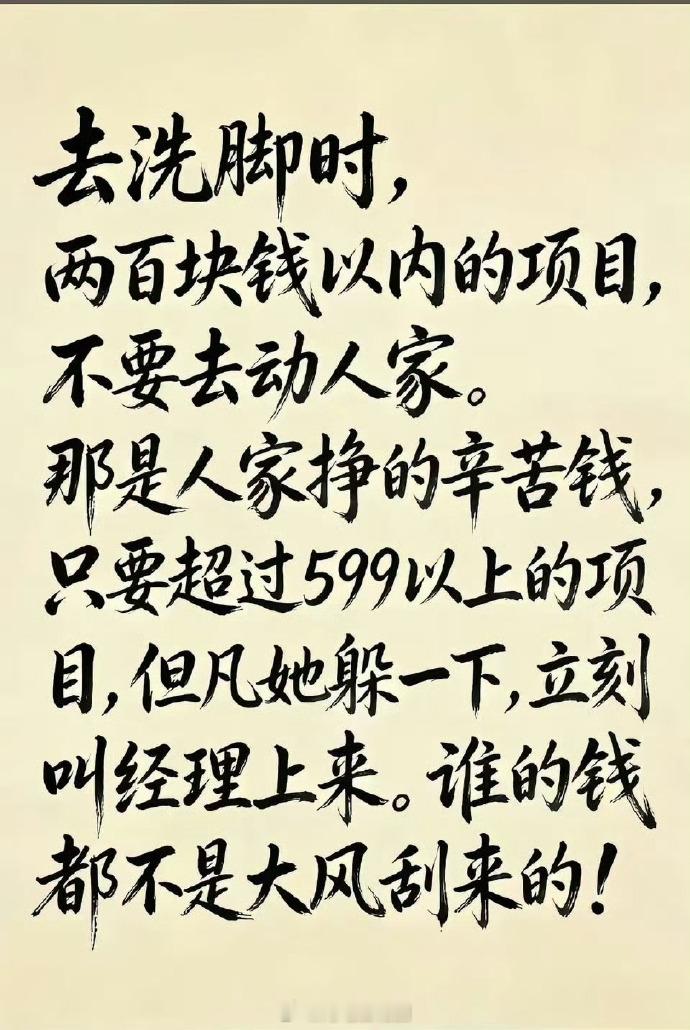 去洗脚时，
两百块钱以内的项目，
不要去动人家。
那是人家挣的辛苦钱，
只要超过599以上的项
目，但凡她躲一下，立刻
叫经理上来。谁的钱
都不是大风刮来的！